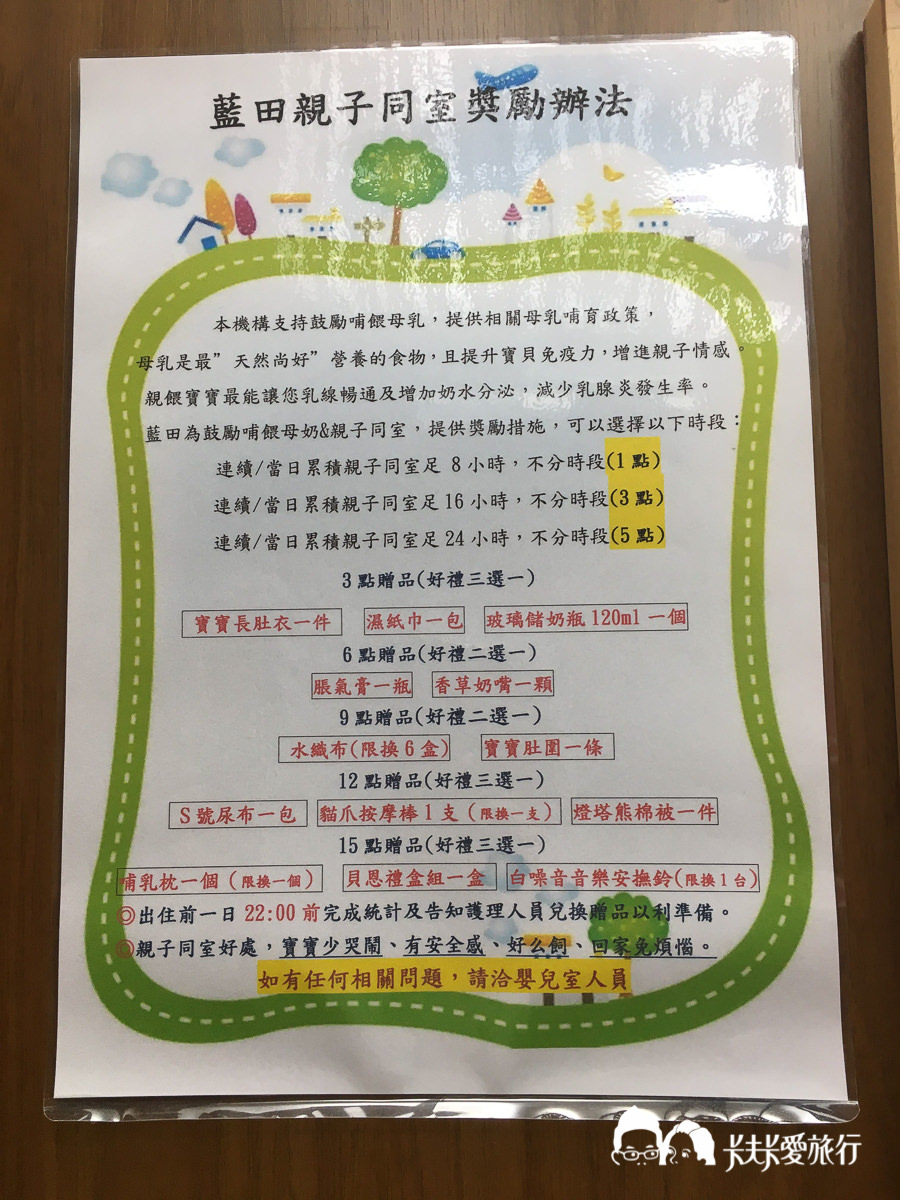 藍田親子同室獎勵辦法
本機構支持鼓勵哺餵母乳，提供相關母乳哺育政策，
母乳是最”天然尚好”營養的食物，且提升寶貝免疫力，增進親子情感。
親餵寶寶最能讓您乳線暢通及增加奶水分泌，減少乳腺炎發生率。
藍田為鼓勵哺餵母奶&親子同室，提供獎勵措施，可以選擇以下時段：
連續/當日累積親子同室足 8 小時，不分時段(1 點)
連續/當日累積親子同室足 16 小時，不分時段(3 點)
連續/當日累積親子同室足 24 小時，不分時段(5 點)
3 點贈品(好禮三選一)
寶寶長肚衣一件 濕紙巾一包 玻璃儲奶瓶 120ml 一個
6 點贈品(好禮二選一)
脹氣膏一瓶 香草奶嘴一顆
9 點贈品(好禮二選一)
水織布(限換 6 盒) 寶寶肚圍一條
12 點贈品(好禮三選一)
S 號尿布一包 貓爪按摩棒 1 支（限換一支） 燈塔熊棉被一件
15 點贈品(好禮三選一)
哺乳枕一個（限換一個） 貝恩禮盒組一盒 白噪音音樂安撫鈴(限換 1 台)
◎出住前一日 22:00 前完成統計及告知護理人員兌換贈品以利準備。
◎親子同室好處，寶寶少哭鬧、有安全感、好么飼、回家免煩惱。
如有任何相關問題，請洽嬰兒室人員
卡夫卡愛旅行